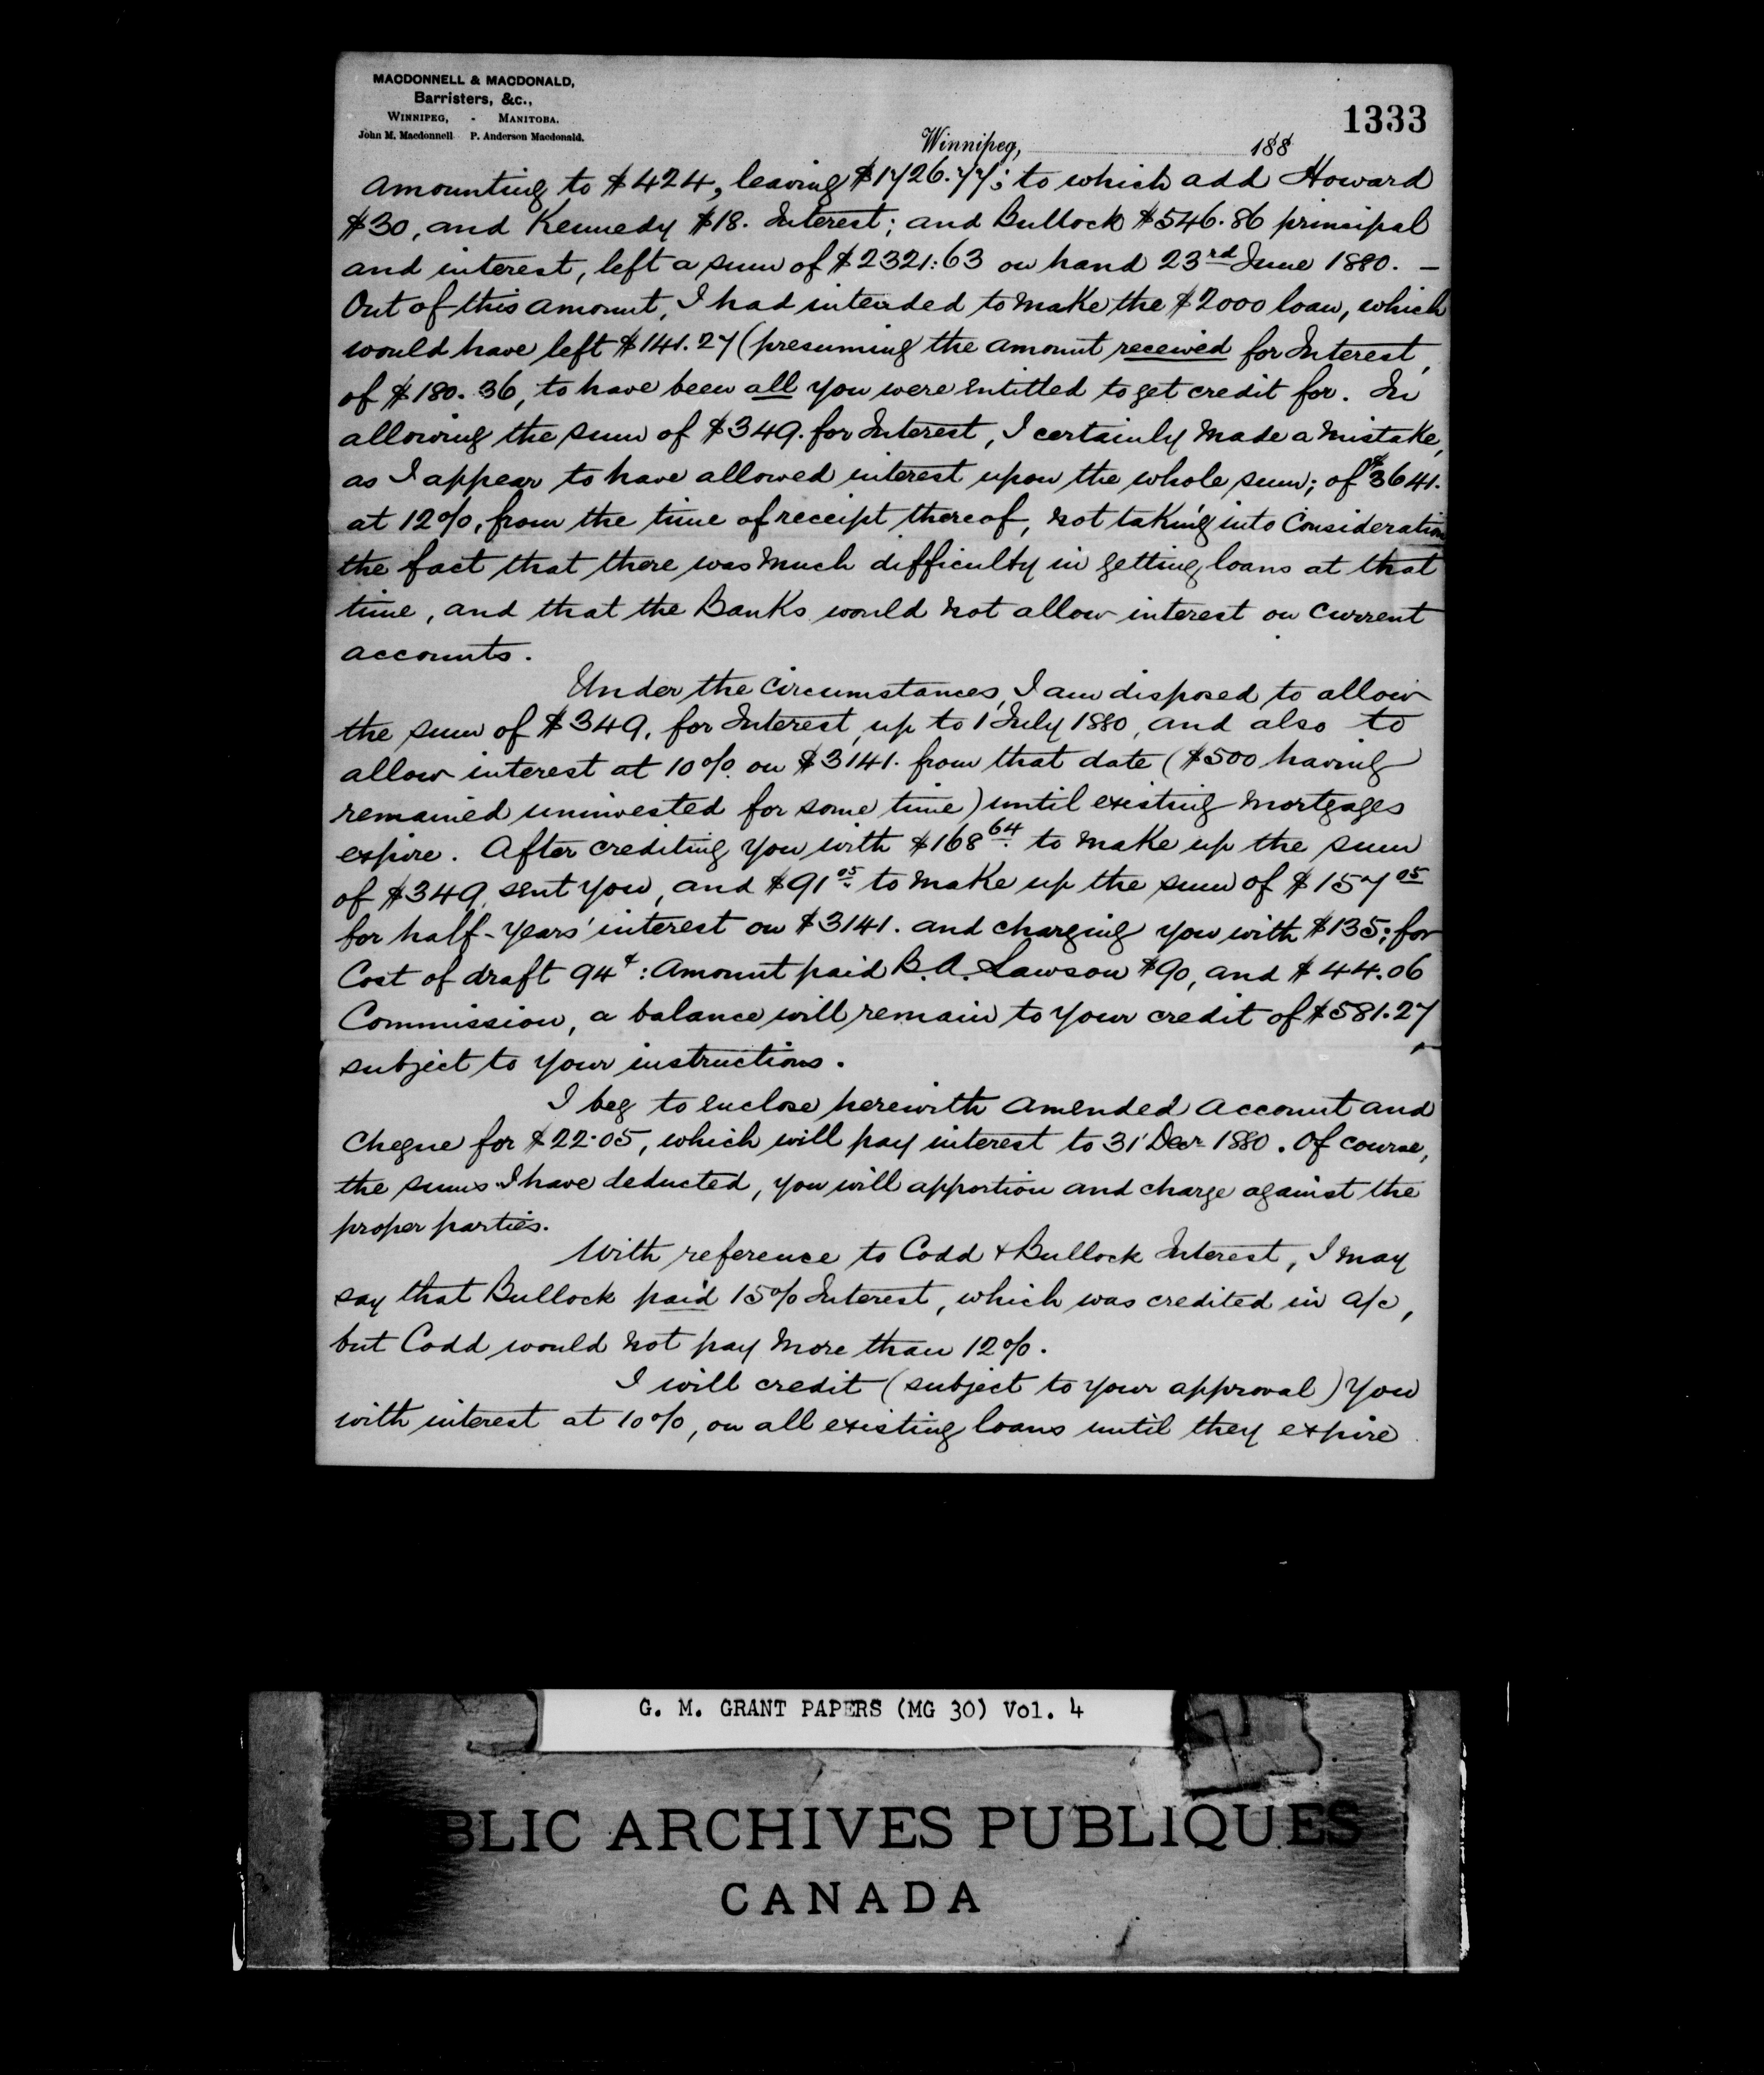 MACDONNELL & MACDONALD,
Barristers, &c.,
WINNIPEG, - MANITOBA.
John M. Macdonnell P. Anderson Macdonald.
1333
Winnipeg, 188
amounting to $424, leaving $1726.77; to which add Howard
$30, and Kennedy $18. Interest; and Bullock $546.86 principal
and interest, left a sum of $2321:63 on hand 23rd June 1880. —
Out of this amount, I had intended to make the $2000 loan, which
would have left $141.27 (presuming the amount received for Interest,
of $180.36, to have been all you were entitled to get credit for. In
allowing the sum of $349. for Interest, I certainly made a mistake,
as I appear to have allowed interest upon the whole sum; of $3641.
at 12%, from the time of receipt thereof, not taking into Consideration
the fact that there was much difficulty in getting loans at that
time, and that the Banks would not allow interest on current
accounts.
Under the circumstances, I am disposed to allow
the sum of $349, for Interest, up to 1 July 1880, and also to
allow interest at 10% on $3141. from that date ($500 having
remained uninvested for some time) until existing mortgages
expire. After crediting you with $168.64 to make up the sum
of $349, sent you, and $91.05 to make up the sum of $157.05
for half-years' interest on $3141. and charging you with $135; for
Cost of draft 94¢: Amount paid B. A. Lawson $90, and $44.06
Commission, a balance will remain to your credit of $581.27
subject to your instructions.
I beg to enclose herewith amended account and
cheque for $22.05, which will pay interest to 31 Decr 1880. Of course,
the sums I have deducted, you will apportion and charge against the
proper parties.
With reference to Codd & Bullock Interest, I may
say that Bullock paid 15% Interest, which was credited in a/c,
but Codd would not pay more than 12%.
I will credit (subject to your approval) you
with interest at 10%, on all existing loans until they expire
G. M. GRANT PAPERS (MG 30) Vol. 4
BLIC ARCHIVES PUBLIQUES
CANADA